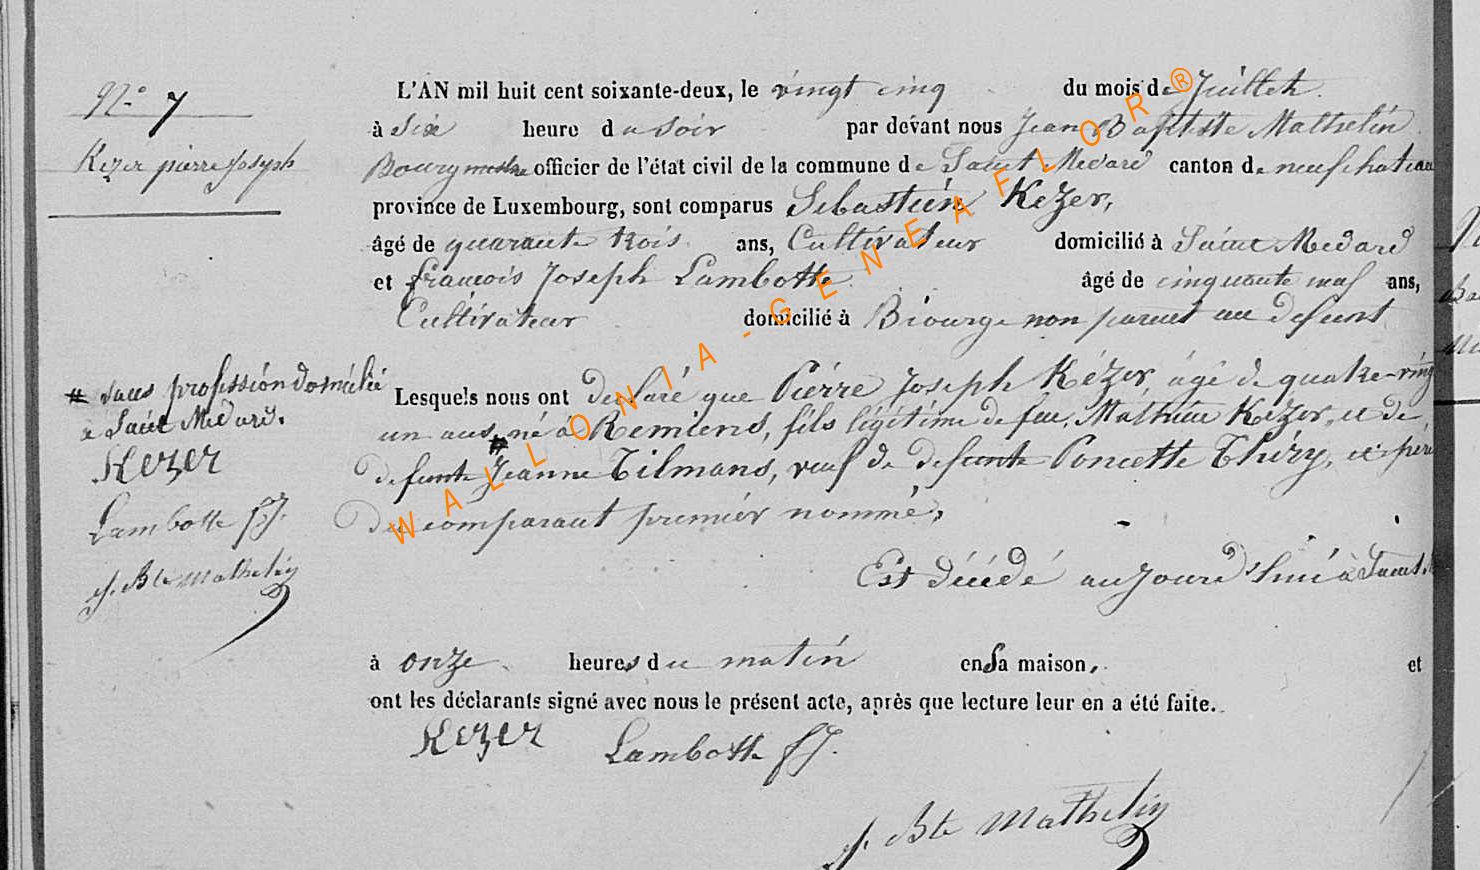 N.° 7
Kezer pierre Joseph
L'AN mil huit cent soixante-deux, le vingt cinq du mois de Juillet
à Six heure du soir par devant nous Jean Baptiste Mathelin
Bourgmestre officier de l'état civil de la commune de Saint Medard canton de neufchateau
province de Luxembourg, sont comparus Sébastien Kezer,
âgé de quarante trois ans, Cultivateur domicilié à Saint Medard
et francois Joseph Lambotte âgé de cinquante neuf ans,
Cultivateur domicilié à Biourge non parent au défunt
Lesquels nous ont déclaré que Piérre Joseph Kézer, âgé de quatre-vingt
un ans, né à Remiens, fils légitime de feu, Mathieu Kézer, et de
defunte Jeanne Tilmans, veuf de defunte Poncette Thiry, et père
du comparant premiér nommé,
Est décédé aujourd'hui à Saint
à onze heures du matin en Sa maison, et
ont les déclarants signé avec nous le présent acte, après que lecture leur en a été faite.
Kezer Lambotte fJ.
J. Bte Mathelin
# sans profession domicilié
à Saint Médard.
Kezer
Lambotte fJ.
J. Bte Mathelin
WALLONIA-GENEAFLOR®